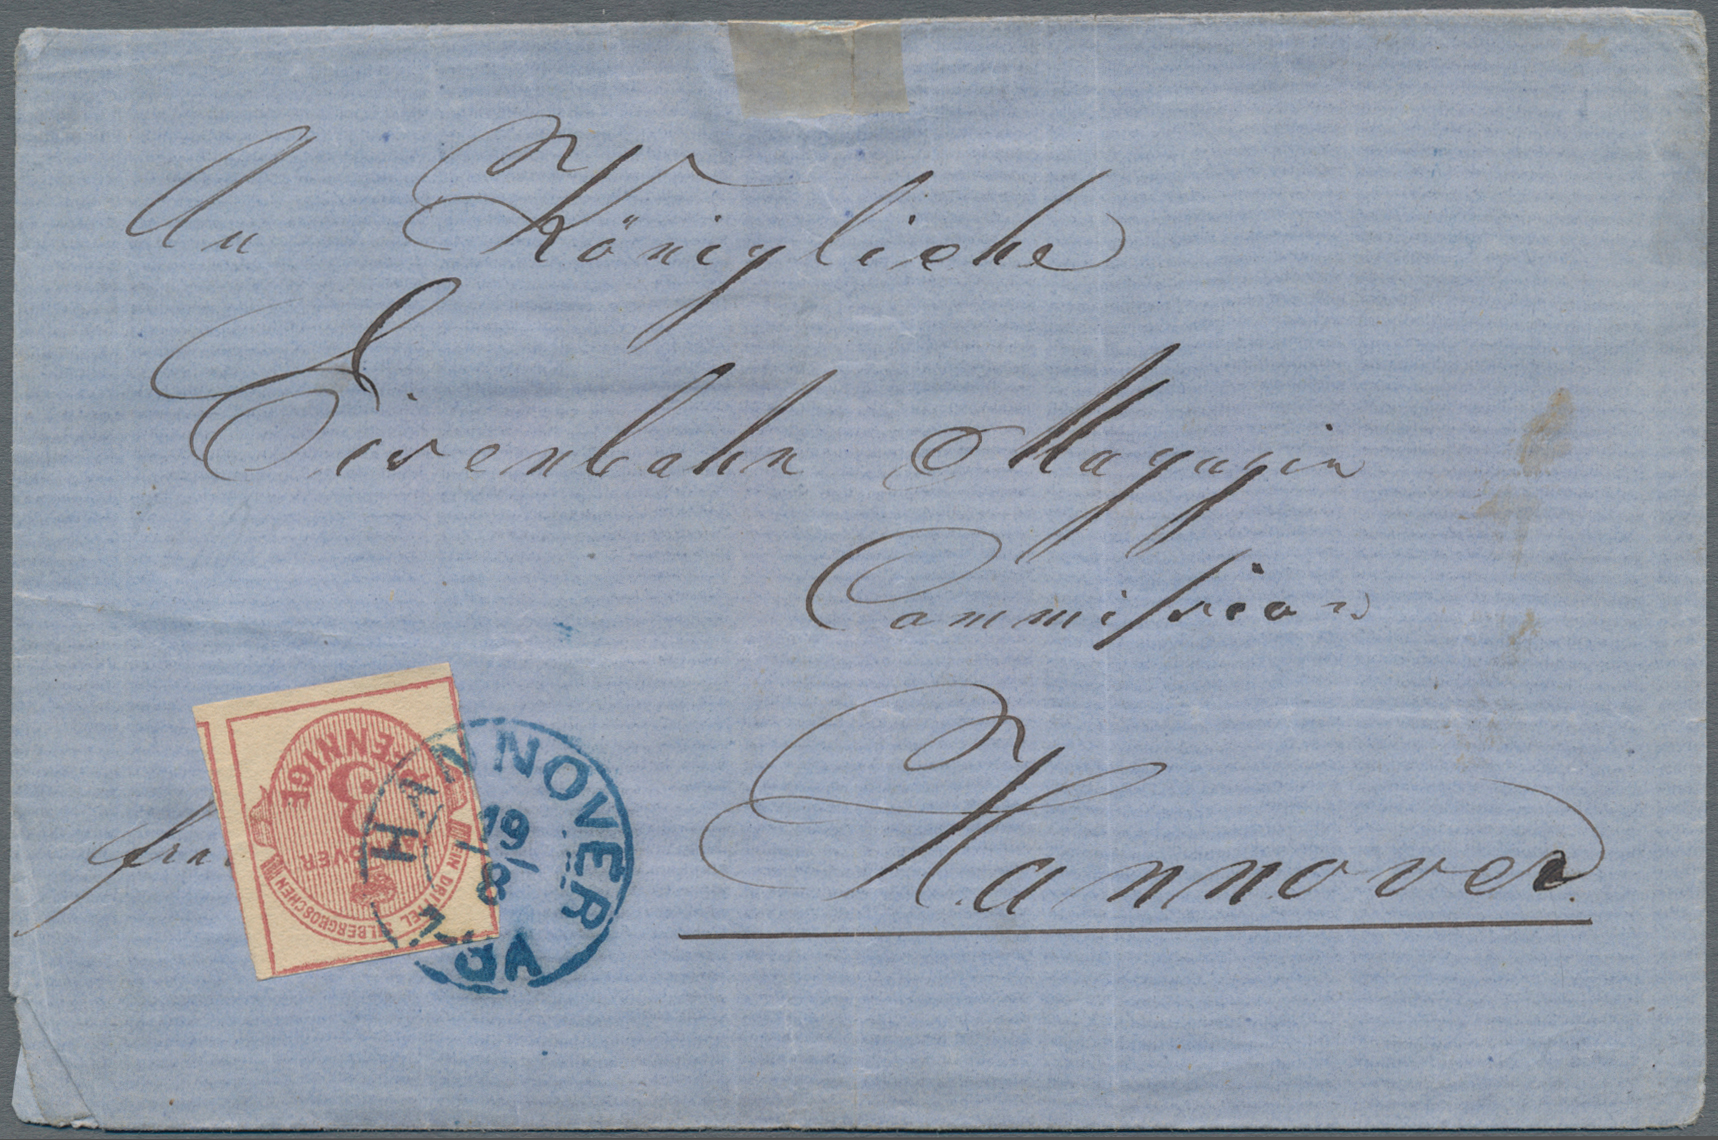 An Königliche
Eisenbahn Magazin
Commission
Hannover
fra
HANNOVER
19/8
3
PFENNIGE
HANNOVER
EIN DRITTEL SILBERGROSCHEN